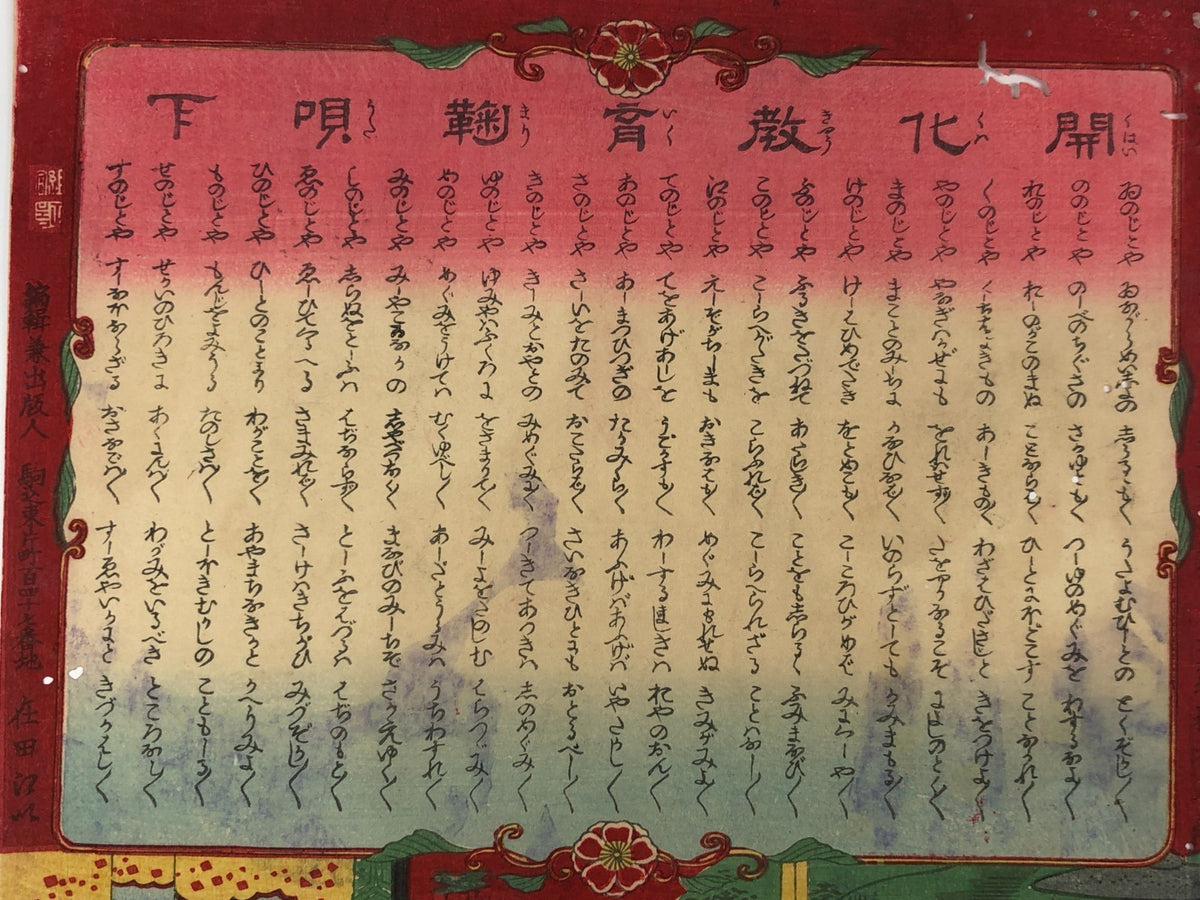 開化教育鞠唄 下
くはい くわ きやう いく まり うた
ゐのじとや ゐながらめいしよの しるゝも〱 うたよむひとの とくぞかし〱
のゝじとや のーべのちぐさの さかゆも〱 つーゆのめぐみを わするなよ〱
おのじとや おーのがこのまぬ ことならも〱 ひーとにほどこす ことなかれ〱
くのじとや くーちはよきもの あーきもの〱 わざはひ と きをつけよ〱
やのじとや やなぎハかぜにも をれハせず〱
まのじとや まことのみちに かなひなば〱 いのらずとても かみまもる〱
けのじとや けーそひめでたき をとめごも〱 こーころひがめば みにくーや〱
ふのじとや ふるきをたづねて あたらしき〱 ことをもしらるゝ ふみまなび〱
このじとや こーらへがたきを こらふれば〱 こーらへられざる ことハなーし〱
えのじとや えーぞがちーまも おきなはも〱 めぐみにもれせぬ きみがみよ〱
てのじとや てをあげあしを うごかすも〱 わーするまじきハ おやのおん〱
あのじとや あーまつひつぎの たかみくら〱 あふげバあふげバ いやたかし〱
さのじとや さーいをたのみて おこたらば〱 さいなきひとにも おとるべーし〱
きのじとや きーみとおやとの みめぐみに〱 つーきてあつきハ しのめぐみ〱
ゆのじとや ゆみやハふくろに をさまりて〱 みーよをたのしむ はらつゞみ〱
めのじとや めぐみをうけてハ むくゆべし〱 あーだとうらみハ うちわすれ〱
みのじとや みーやこゐなかの しやべつなく〱 まなびのみーちぞ さかえゆく〱
しのじとや しらぬをとーふハ はぢならず〱 とーふをはづるハ はぢのもと〱
ゑのじとや ゑーひてくるへる さまみれば〱 さーけハきちがひ みづぞかし〱
ひのじとや ひーとのことより わがことを〱 あやまちなきかと かへりみよ〱
ものじとや もんじをよみうる たのしさハ〱 とーほきむかしの こともしーる〱
せのじとや せかいのひろきに わがみをいるべき ところなし〱
すのじとや すーなほならざる おさなごハ〱 すーゑやいかにと きづかはし〱
編輯兼出版人 駒込東片町百四十七番地 在田